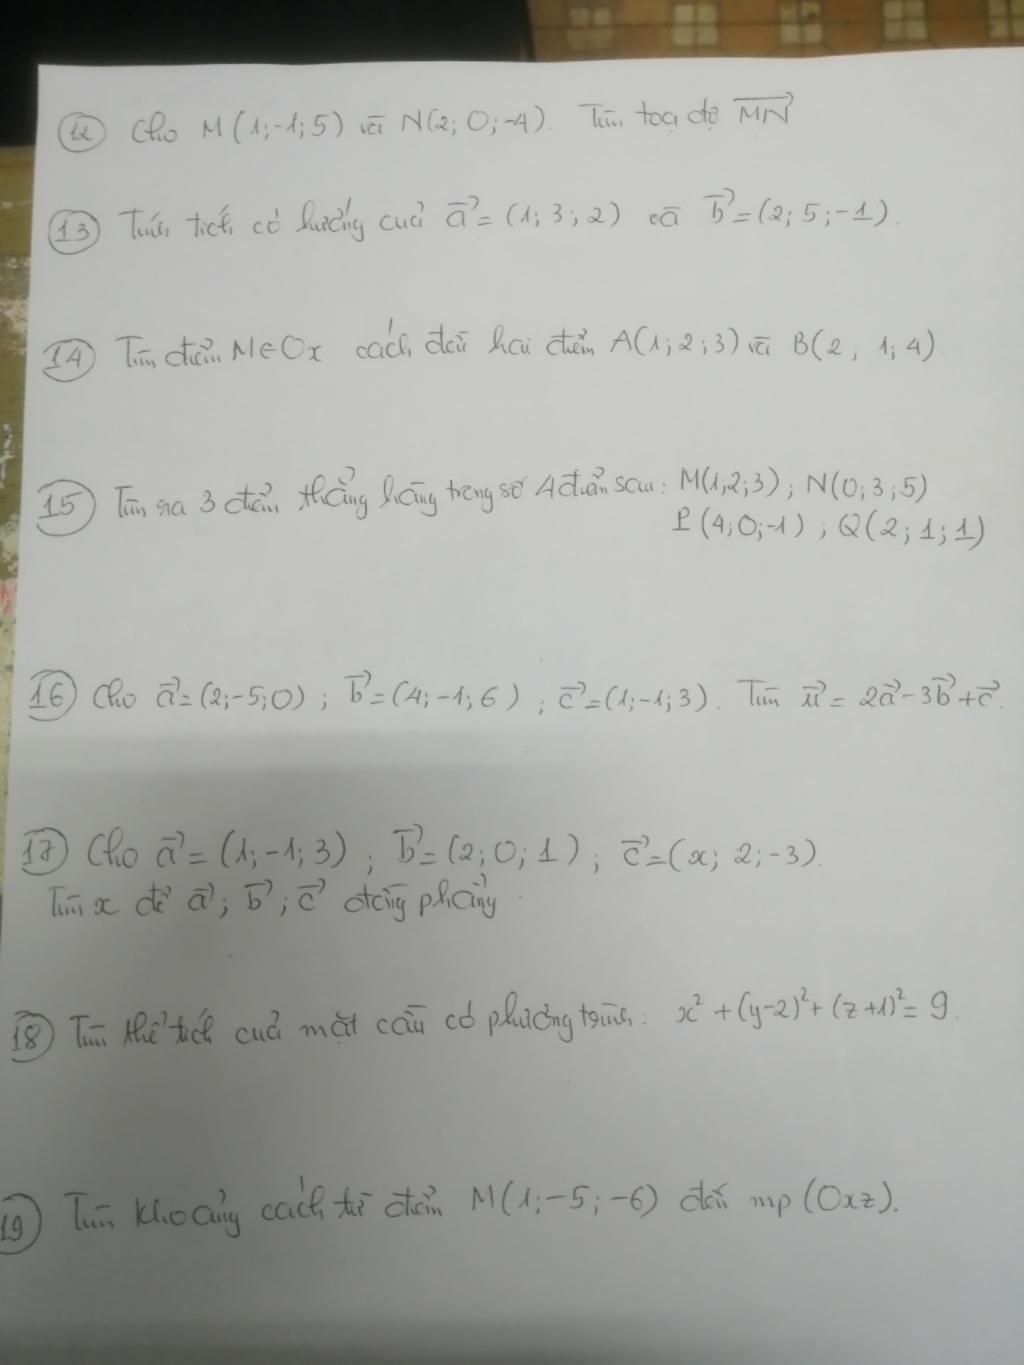 12 Cho M(1;-1;5) và N(2;0;-4). Tìm toạ độ MN
13 Tính tích có hướng của a = (1; 3; 2) và b = (2; 5; -1).
14 Tìm điểm M∈Ox cách đều hai điểm A(1; 2; 3) và B(2; 1; 4)
15 Tìm ra 3 điểm thẳng hàng trong số 4 điểm sau: M(1;2;3); N(0;3;5)
P(4;0;-1); Q(2; 1; 1)
16 Cho a = (2;-5;0); b = (4;-1;6); c = (1;-1;3). Tìm u = 2a - 3b + c.
17 Cho a = (1;-1;3); b = (2; 0; 1); c = (x; 2; -3).
Tìm x để a; b; c đồng phẳng.
18 Tìm thể tích của mặt cầu có phương trình: x² + (y-2)² + (z+1)² = 9.
19 Tìm khoảng cách từ điểm M(1;-5;-6) đến mp (Oxz).